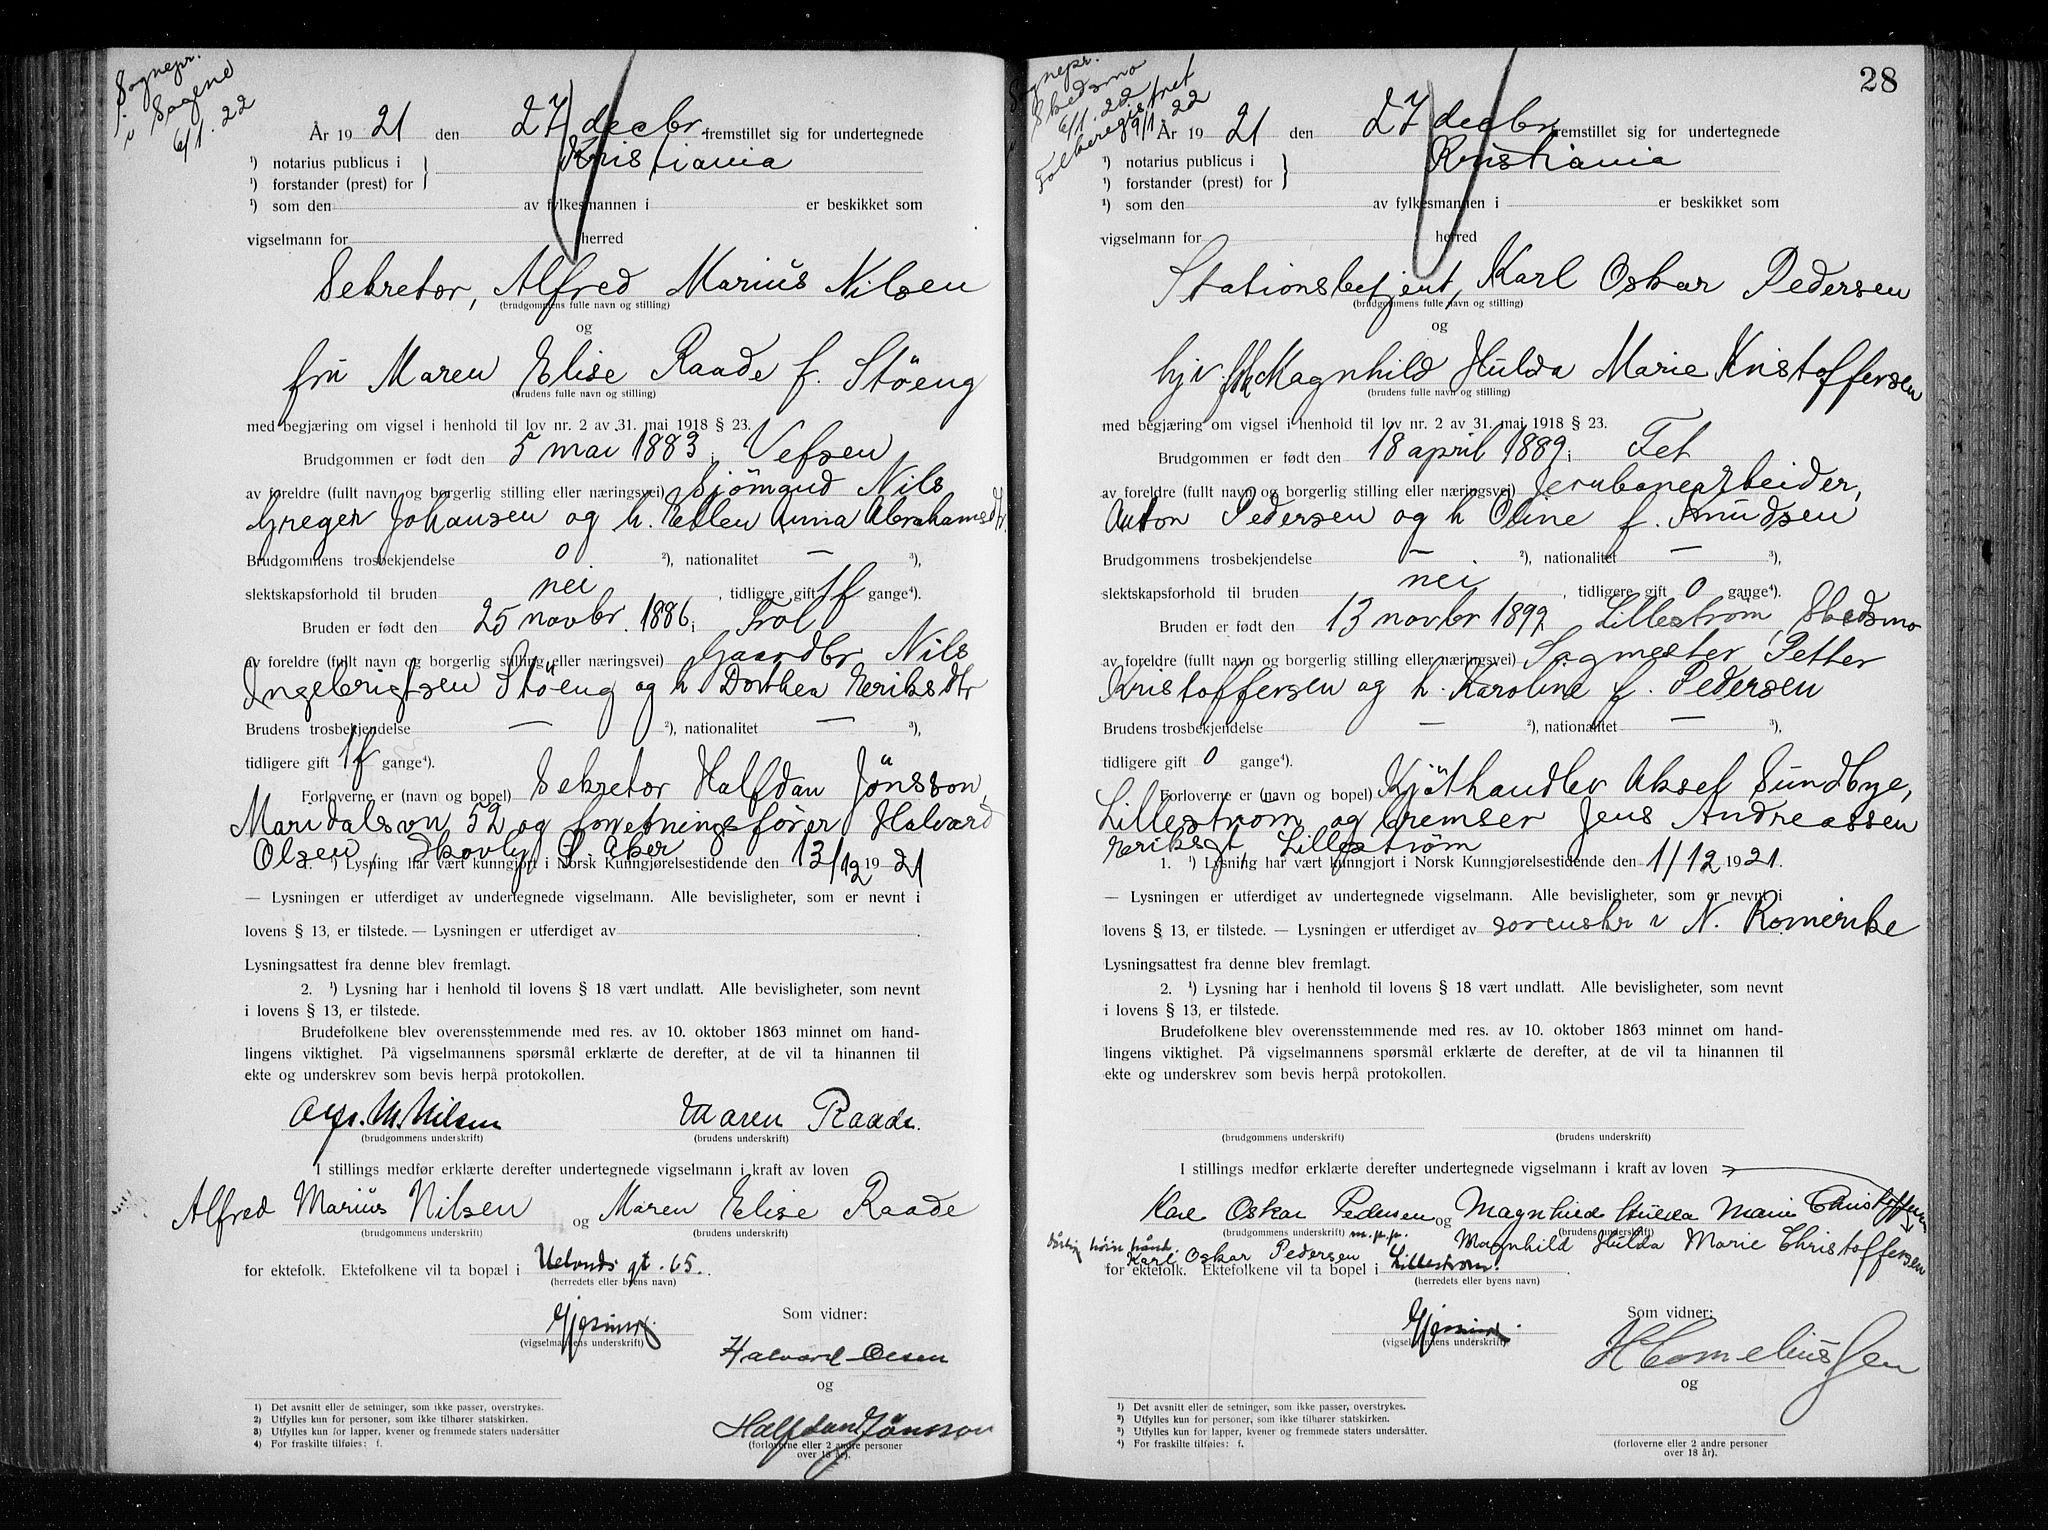 Sognepr.
i Sagene
6/1. 22
År 1921 den 27 decbr. fremstillet sig for undertegnede
¹) notarius publicus i } Kristiania
¹) forstander (prest) for
¹) som den av fylkesmannen i er beskikket som
vigselmann for herred
Sekretær, Alfred Marius Nilsen
(brudgommens fulle navn og stilling)
og
fru Maren Elise Raade f. Stöeng
(brudens fulle navn og stilling)
med begjæring om vigsel i henhold til lov nr. 2 av 31. mai 1918 § 23.
Brudgommen er født den 5 mai 1883 i Vefsen
av foreldre (fullt navn og borgerlig stilling eller næringsvei) Sjömand Nils
Greger Johansen og h. Ellen Anna Abrahamsdtr.
Brudgommens trosbekjendelse 0 ²), nationalitet — ³),
slektskapsforhold til bruden nei, tidligere gift 1f gange⁴).
Bruden er født den 25 novbr. 1886 i Frol
av foreldre (fullt navn og borgerlig stilling eller næringsvei) Gaardbr Nils
Ingebrigtsen Stöeng og h Dorthea Eriksdtr
Brudens trosbekjendelse — ²), nationalitet — ³),
tidligere gift 1f gange⁴).
Forloverne er (navn og bopel) Sekretær Halfdan Jönsson,
Maridalsvn 52 og forretningsfører Halvard
Olsen, Skovly Ø. Aker
1. ¹) Lysning har vært kunngjort i Norsk Kunngjørelsestidende den 13/12 1921
— Lysningen er utferdiget av undertegnede vigselmann. Alle bevisligheter, som er nevnt i
lovens § 13, er tilstede. — Lysningen er utferdiget av
Lysningsattest fra denne blev fremlagt.
2. ¹) Lysning har i henhold til lovens § 18 vært undlatt. Alle bevisligheter, som nevnt
i lovens § 13, er tilstede.
Brudefolkene blev overensstemmende med res. av 10. oktober 1863 minnet om hand-
lingens viktighet. På vigselmannens spørsmål erklærte de derefter, at de vil ta hinannen til
ekte og underskrev som bevis herpå protokollen.
Alfr. M. Nilsen Maren Raade.
(brudgommens underskrift) (brudens underskrift)
I stillings medfør erklærte derefter undertegnede vigselmann i kraft av loven
Alfred Marius Nilsen og Maren Elise Raade
(brudgommens underskrift) (brudens underskrift)
for ektefolk. Ektefolkene vil ta bopæl i Uelands gt. 65.
(herredets eller byens navn)
Som vidner:
(vigselmannens underskrift)
Halvard Olsen
og
Halfdan Jönsson
(forloverne eller 2 andre personer
over 18 år).
1) Det avsnitt eller de setninger, som ikke passer, overstrykes.
2) Utfylles kun for personer, som ikke tilhører statskirken.
3) Utfylles kun for lapper, kvener og fremmede staters undersåtter
4) For fraskilte tilføies: f.
28
Sognepr.
i Skedsmo
6/1. 22
Folkeregistret
9/1. 22
År 1921 den 27 decbr fremstillet sig for undertegnede
¹) notarius publicus i } Kristiania
¹) forstander (prest) for
¹) som den av fylkesmannen i er beskikket som
vigselmann for herred
Stationsbetjent, Karl Oskar Pedersen
(brudgommens fulle navn og stilling)
og
hjv. Magnhild Hulda Marie Kristoffersen
(brudens fulle navn og stilling)
med begjæring om vigsel i henhold til lov nr. 2 av 31. mai 1918 § 23.
Brudgommen er født den 18 april 1889 i Fet
av foreldre (fullt navn og borgerlig stilling eller næringsvei) Jernbanearbeider,
Anton Pedersen og h Oline f. Knudsen
Brudgommens trosbekjendelse — ²), nationalitet — ³),
slektskapsforhold til bruden nei, tidligere gift 0 gange⁴).
Bruden er født den 13 novbr 1892 i Lillestrøm, Skedsmo
av foreldre (fullt navn og borgerlig stilling eller næringsvei) Sagmester Petter
Kristoffersen og h. Karoline f. Pedersen
Brudens trosbekjendelse — ²), nationalitet — ³),
tidligere gift 0 gange⁴).
Forloverne er (navn og bopel) Kjöthandler Aksel Sundbye,
Lillestrøm og bremser Jens Andreassen
Eriksgt, Lillestrøm
1. ¹) Lysning har vært kunngjort i Norsk Kunngjørelsestidende den 1/12 1921.
— Lysningen er utferdiget av undertegnede vigselmann. Alle bevisligheter, som er nevnt i
lovens § 13, er tilstede. — Lysningen er utferdiget av sorenskr i N. Romerike
Lysningsattest fra denne blev fremlagt.
2. ¹) Lysning har i henhold til lovens § 18 vært undlatt. Alle bevisligheter, som nevnt
i lovens § 13, er tilstede.
Brudefolkene blev overensstemmende med res. av 10. oktober 1863 minnet om hand-
lingens viktighet. På vigselmannens spørsmål erklærte de derefter, at de vil ta hinannen til
ekte og underskrev som bevis herpå protokollen.
(brudgommens underskrift) (brudens underskrift)
I stillings medfør erklærte derefter undertegnede vigselmann i kraft av loven
Karl Oskar Pedersen og Magnhild Hulda Marie Christoffersen
(brudgommens underskrift) m. p. p. (brudens underskrift)
Karl Oskar Pedersen Magnhild Hulda Marie Christoffersen
for ektefolk. Ektefolkene vil ta bopel i Lillestrøm.
(herredets eller byens navn)
Som vidner:
(vigselmannens underskrift)
H Corneliussen
og
¹) Det avsnitt eller de setninger, som ikke passer, overstrykes.
²) Utfylles kun for personer, som ikke tilhører statskirken.
³) Utfylles kun for lapper, kvener og fremmede staters undersåtter.
⁴) For fraskilte tilføies: f.
(forloverne eller 2 andre personer
over 18 år).